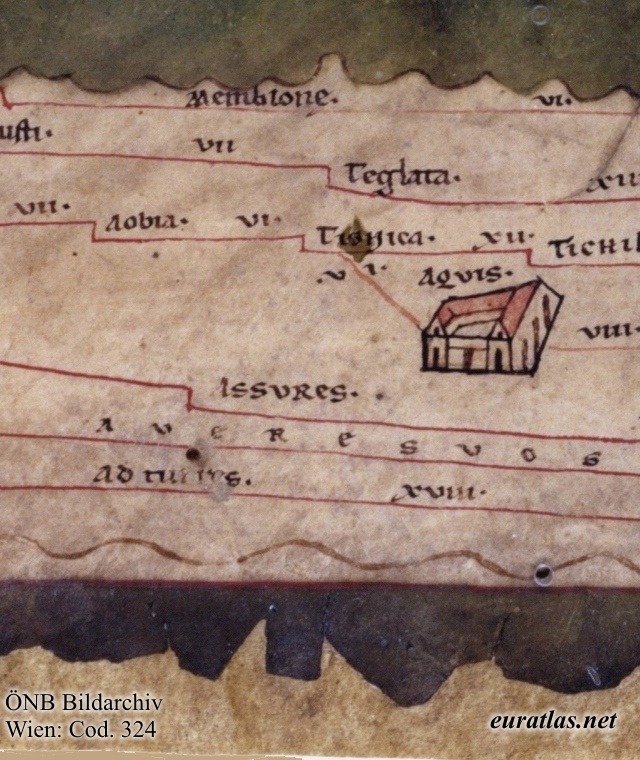 Membione. vi.
usti. vii
Teglata. xii
vii. Aobia. vi. Tionica. xii. Tichil
vi. Aqvis.
viii.
Issvres.
A v e R e s v o s
Ad turres.
xviii.
ÖNB Bildarchiv
Wien: Cod. 324
euratlas.net